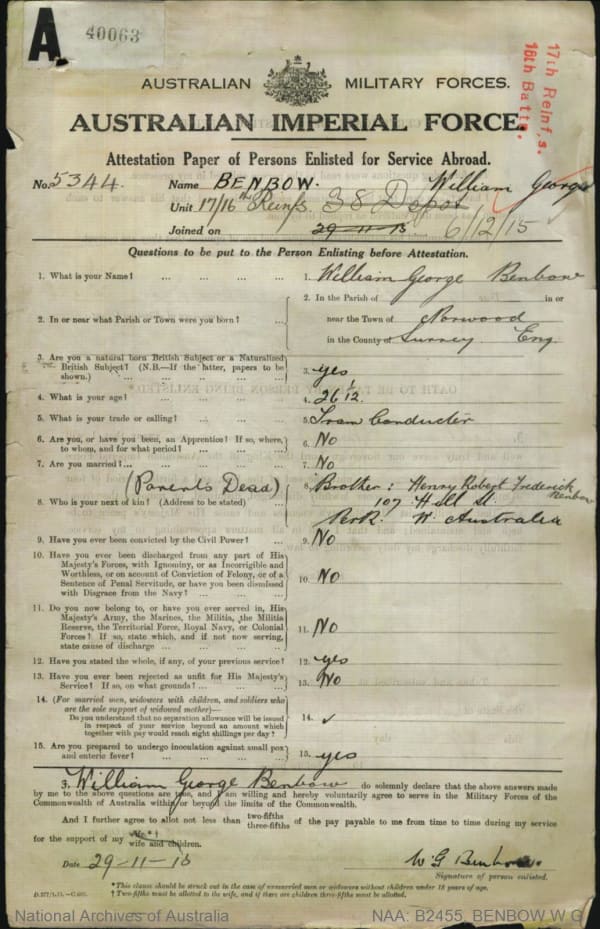 A
40063
17th Reinf,s.
16th Battn.
AUSTRALIAN MILITARY FORCES.
AUSTRALIAN IMPERIAL FORCE.
Attestation Paper of Persons Enlisted for Service Abroad.
No. 5344. Name BENBOW. William George
Unit 17/16th Reinfs. 38 Depot
Joined on 29-11-15 6/12/15
Questions to be put to the Person Enlisting before Attestation.
1. What is your Name? ... ... ... ... 1. William George Benbow
2. In or near what Parish or Town were you born? ... 2. In the Parish of in or
near the Town of Norwood
in the County of Surrey Eng
3. Are you a natural born British Subject or a Naturalized
British Subject? (N.B.—If the latter, papers to be
shown.) ... ... ... ... ... 3. yes
4. What is your age? ... ... ... ... 4. 26 1/12.
5. What is your trade or calling? ... ... ... 5. Tram Conductor
6. Are you, or have you been, an Apprentice? If so, where,
to whom, and for what period? ... ... ... 6. No
7. Are you married? ... ... ... ... 7. No
(Parents Dead)
8. Who is your next of kin? (Address to be stated) ... 8. Brother: Henry Robert Frederick Benbow
107 Hill St.
Perth. W. Australia
9. Have you ever been convicted by the Civil Power? ... 9. No
10. Have you ever been discharged from any part of His
Majesty's Forces, with Ignominy, or as Incorrigible and
Worthless, or on account of Conviction of Felony, or of a
Sentence of Penal Servitude, or have you been dismissed
with Disgrace from the Navy? ... ... ... 10. No
11. Do you now belong to, or have you ever served in, His
Majesty's Army, the Marines, the Militia, the Militia
Reserve, the Territorial Force, Royal Navy, or Colonial
Forces? If so, state which, and if not now serving,
state cause of discharge ... ... ... ... 11. No
12. Have you stated the whole, if any, of your previous service? 12. yes
13. Have you ever been rejected as unfit for His Majesty's
Service? If so, on what grounds? ... ... ... 13. No
14. (For married men, widowers with children, and soldiers who
are the sole support of widowed mother)—
Do you understand that no separation allowance will be issued
in respect of your service beyond an amount which
together with pay would reach eight shillings per day? 14. ✓
15. Are you prepared to undergo inoculation against small pox
and enteric fever? ... ... ... ... 15. yes
I, William George Benbow do solemnly declare that the above answers made
by me to the above questions are true, and I am willing and hereby voluntarily agree to serve in the Military Forces of the
Commonwealth of Australia within or beyond the limits of the Commonwealth.
And I further agree to allot not less than two-fifths
three-fifths of the pay payable to me from time to time during my service
for the support of my wife*†
wife and children.
Date 29-11-15 W G Benbow.
Signature of person enlisted.
* This clause should be struck out in the case of unmarried men or widowers without children under 18 years of age.
† Two-fifths must be allotted to the wife, and if there are children three-fifths must be allotted.
National Archives of Australia NAA: B2455, BENBOW W G